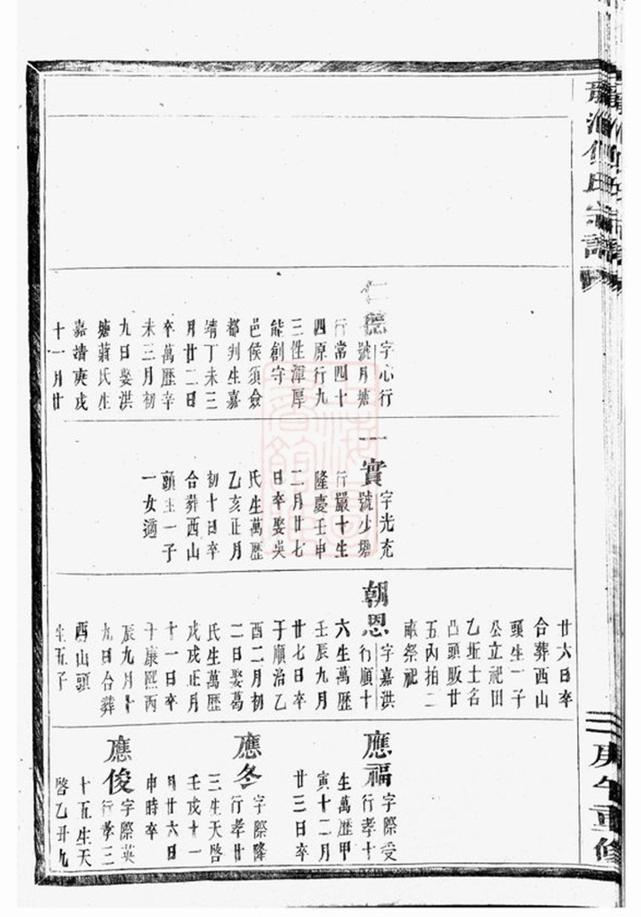 氏宗譜
庚午重修
德
字心行
號月塘
行常四十
四原行九
三性渾厚
能創守
邑侯須僉
都判生嘉
靖丁未三
月廿二日
卒萬歷辛
未三月初
九日娶洪
塘蔣氏生
嘉靖庚戌
十一月廿
一實
字光充
號少塘
行嚴十生
隆慶壬申
二月廿七
日卒娶吳
氏生萬歷
乙亥正月
初十日卒
合葬西山
頭生一子
一女適
廿六日卒
合葬西山
頭生一子
公立祀田
乙坵土名
凸頭畈廿
五內拍二
畝祭祀
朝恩
字嘉洪
行順十
六生萬歷
壬辰九月
廿七日卒
于順治乙
酉二月初
二日娶葛
氏生萬歷
戊戌正月
十一日卒
于康熙丙
辰九月十
九日合葬
酉山頭
生五子
應福
字際受
行孝十
生萬歷甲
寅十二月
廿三日卒
應冬
字際隆
行孝廿
三生天啓
壬戌十一
月廿六日
申時卒
應俊
字際英
行孝三
十五生天
啓乙丑九